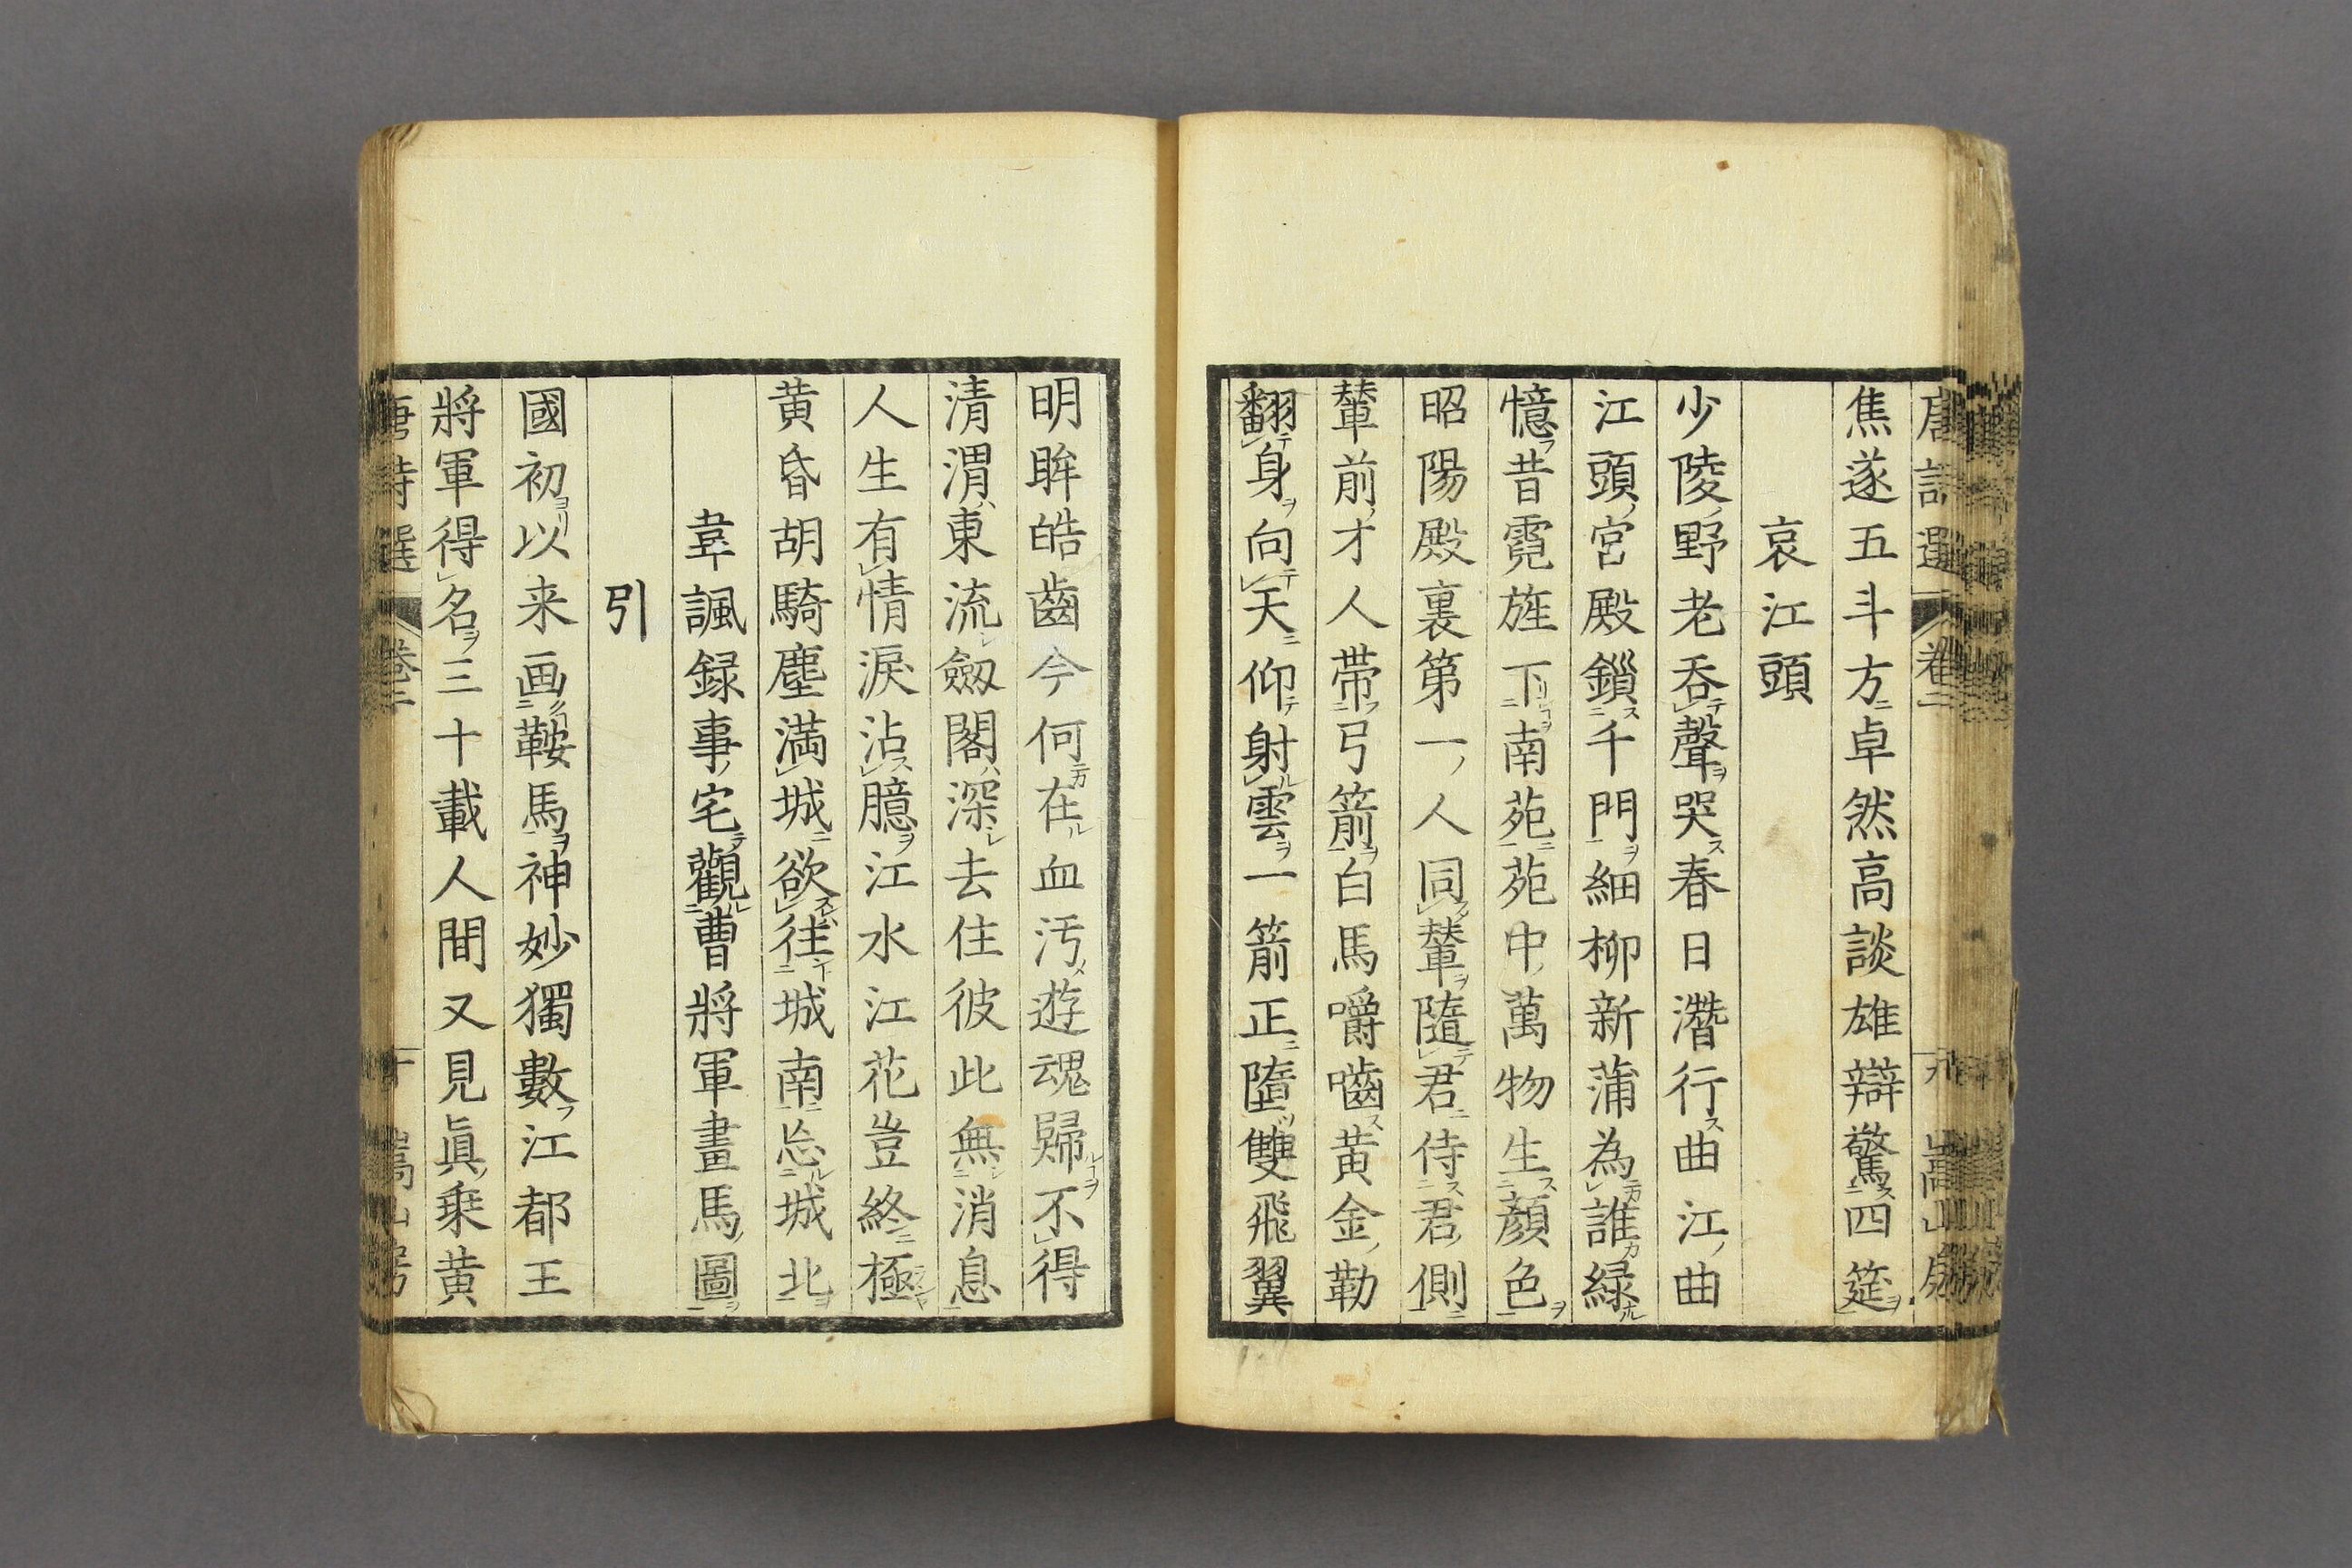 唐詩選 卷二 九 嵩山房
焦遂五斗方卓然高談雄辯驚四筵
哀江頭
少陵野老吞聲哭春日潛行曲江曲
江頭宮殿鎖千門細柳新蒲為誰緑
憶昔霓旌下南苑苑中萬物生顏色
昭陽殿裏第一人同輦隨君侍君側
輦前才人帶弓箭白馬嚼囓黄金勒
翻身向天仰射雲一箭正墮雙飛翼
明眸皓齒今何在血汚遊魂歸不得
清渭東流劔閣深去住彼此無消息
人生有情淚沾臆江水江花豈終極
黄昏胡騎塵満城欲往城南忘城北
韋諷録事宅觀曹將軍畫馬圖
引
國初以来画鞍馬神妙獨數江都王
將軍得名三十載人間又見眞乗黄
唐詩選 卷二 十 嵩山房